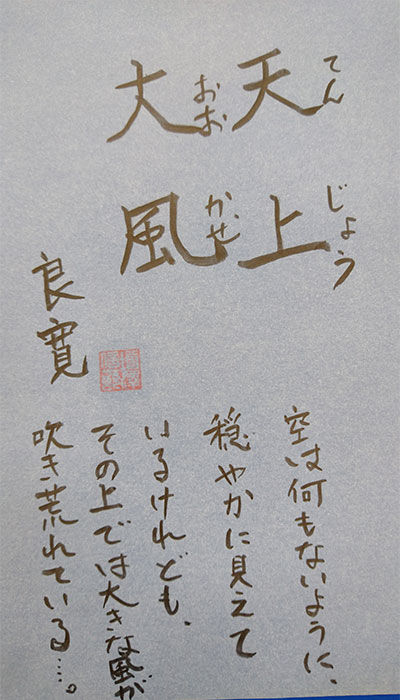 天上
てんじょう
大風
おおかぜ
良寛
空は何もないように、
穏やかに見えて
いるけれども、
その上では大きな風が
吹き荒れている…。